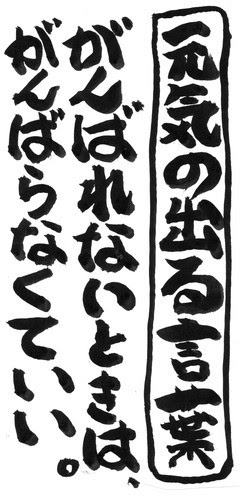 元気の出る言葉
がんばれないときは、
がんばらなくていい。